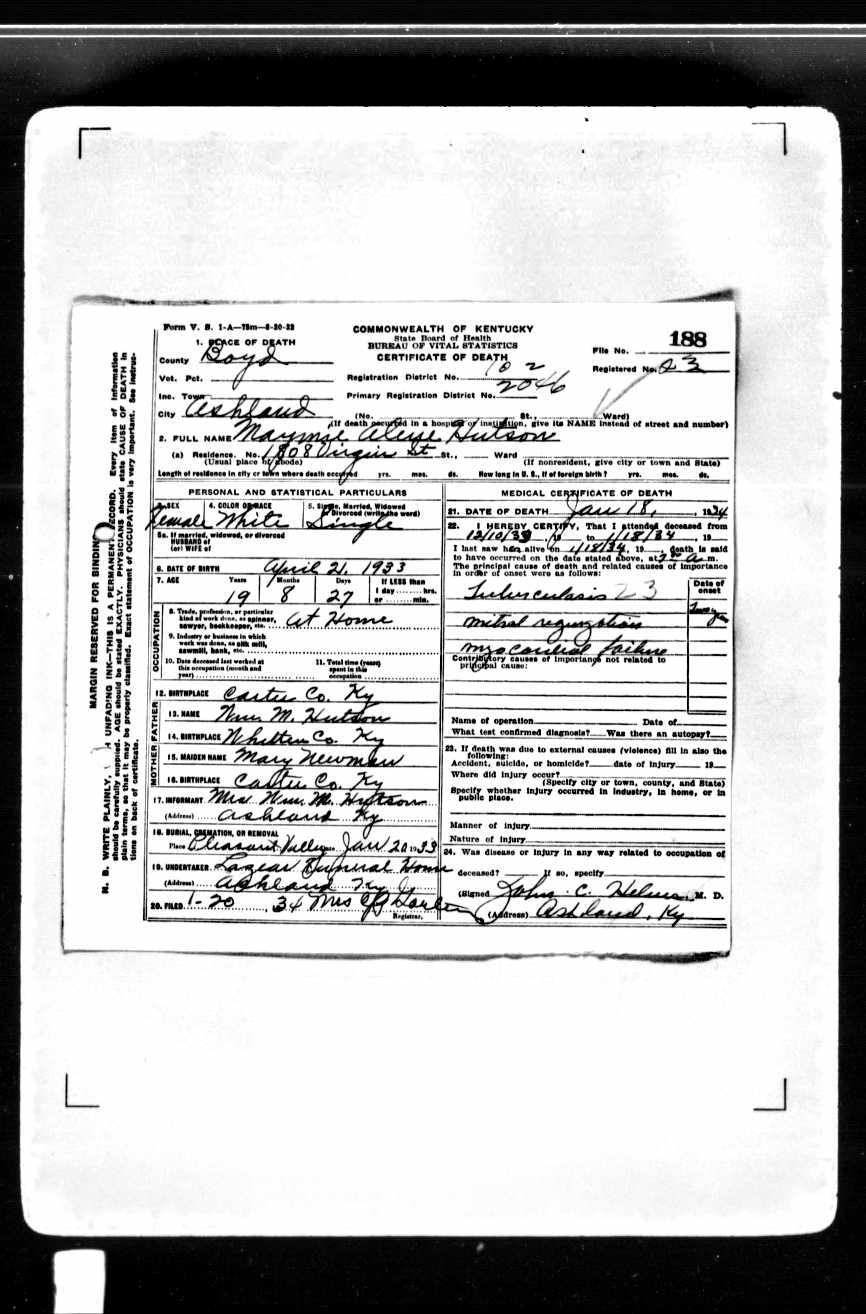 Form V. S. 1-A—75m—8-20-32
COMMONWEALTH OF KENTUCKY
State Board of Health
BUREAU OF VITAL STATISTICS
CERTIFICATE OF DEATH
File No. 188
Registered No. 23
1. PLACE OF DEATH
County Boyd
Vot. Pct.
Inc. Town
City Ashland
Registration District No. 102
Primary Registration District No. 2046
(No. St., Ward)
(If death occurred in a hospital or institution, give its NAME instead of street and number)
2. FULL NAME Hutson
(a) Residence. No. 1808 Virgin St St., Ward
(Usual place of abode) (If nonresident, give city or town and State)
Length of residence in city or town where death occurred yrs. mos. ds. How long in U. S., if of foreign birth? yrs. mos. ds.
PERSONAL AND STATISTICAL PARTICULARS
3. SEX 4. COLOR OR RACE 5. Single, Married, Widowed or Divorced (write the word)
Female White Single
5a. If married, widowed, or divorced
HUSBAND of
(or) WIFE of
6. DATE OF BIRTH April 21, 1933
7. AGE Years Months Days If LESS than
1 day hrs.
or min.
19 8 27
OCCUPATION
8. Trade, profession, or particular
kind of work done, as spinner,
sawyer, bookkeeper, etc. At Home
9. Industry or business in which
work was done, as silk mill,
sawmill, bank, etc.
10. Date deceased last worked at
this occupation (month and
year)
11. Total time (years)
spent in this
occupation
12. BIRTHPLACE Carter Co. Ky
FATHER
13. NAME Wm M. Hutson
14. BIRTHPLACE Co. Ky
MOTHER
15. MAIDEN NAME Mary Newman
16. BIRTHPLACE Carter Co. Ky
17. INFORMANT Mrs. Wm. M. Hutson
(Address) Ashland Ky
18. BURIAL, CREMATION, OR REMOVAL
Place Pleasant Valley Jan 20 1933
19. UNDERTAKER Lazear Funeral Home
(Address) Ashland Ky
20. FILED 1-20, 34 Mrs
Registrar.
MEDICAL CERTIFICATE OF DEATH
21. DATE OF DEATH Jan 18, 1934
22. I HEREBY CERTIFY, That I attended deceased from
12/10/33, 19 to 1/18/34, 19
I last saw her alive on 1/18/34, 19 death is said
to have occurred on the date stated above, at a. m.
The principal cause of death and related causes of importance
in order of onset were as follows:
Date of
onset
Tuberculosis 23
mitral regurgitation
myocardial failure
Contributory causes of importance not related to
principal cause:
Name of operation Date of
What test confirmed diagnosis? Was there an autopsy?
23. If death was due to external causes (violence) fill in also the
following:
Accident, suicide, or homicide? date of injury 19
Where did injury occur?
(Specify city or town, county, and State)
Specify whether injury occurred in industry, in home, or in
public place.
Manner of injury
Nature of injury
24. Was disease or injury in any way related to occupation of
deceased? If so, specify
(Signed John C. Helms, M. D.
(Address) Ashland, Ky
MARGIN RESERVED FOR BINDING
N. B. WRITE PLAINLY, H UNFADING INK—THIS IS A PERMANENT RECORD. Every item of information
should be carefully supplied. AGE should be stated EXACTLY. PHYSICIANS should state CAUSE OF DEATH in
plain terms, so that it may be properly classified. Exact statement of OCCUPATION is very important. See instruc-
tions on back of certificate.